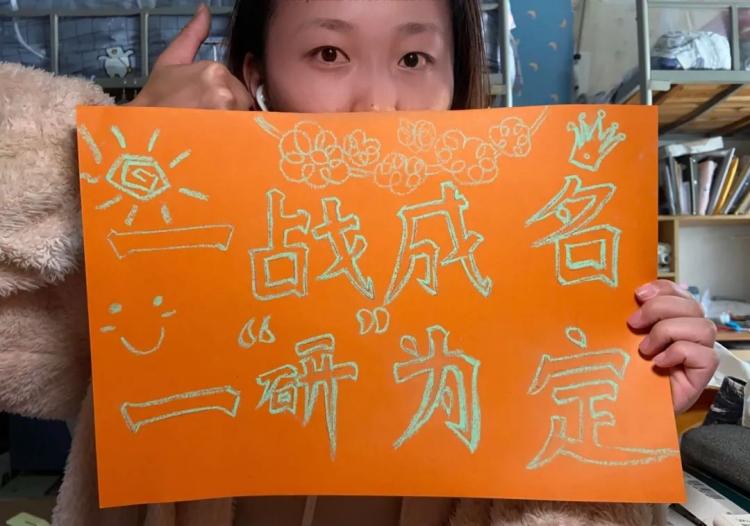 一战成名
一“研”为定